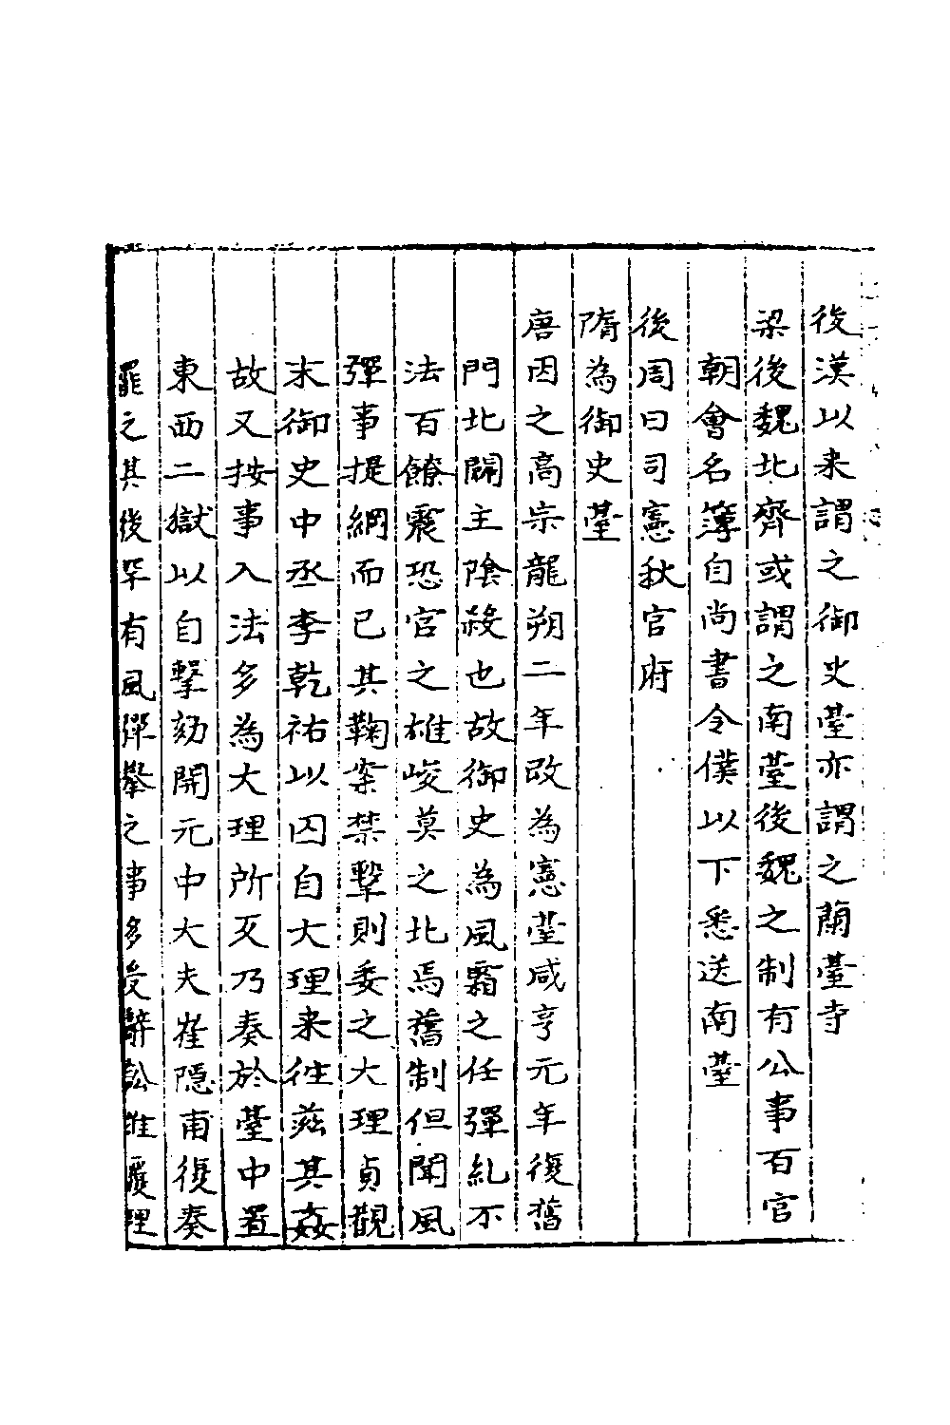 後漢以来謂之御史臺亦謂之蘭臺寺
梁後魏北齊或謂之南臺後魏之制有公事百官
朝會名簿自尚書令僕以下悉送南臺
後周曰司憲秋官府
隋為御史臺
唐因之高宗龍朔二年改為憲臺咸亨元年復舊
門北闢主陰殺也故御史為風霜之任彈糺不
法百僚震恐官之雄峻莫之比焉舊制但聞風
彈事提綱而已其鞠案禁繫則委之大理貞觀
末御史中丞李乾祐以囚自大理来徃茲其姦
故又按事入法多為大理所反乃奏於臺中置
東西二獄以自擊劾開元中大夫崔隠甫復奏
罷之其後罕有風彈舉之事多受辭訟惟覆理